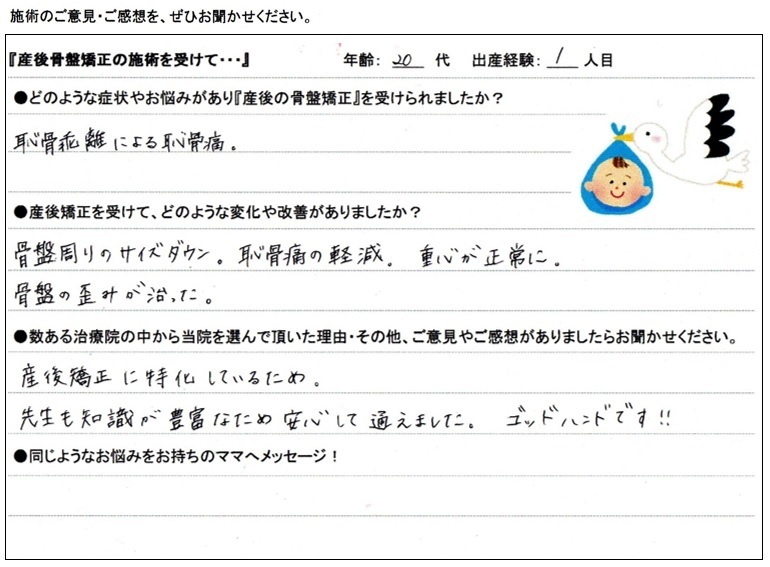 施術のご意見・ご感想を、ぜひお聞かせください。
『産後骨盤矯正の施術を受けて・・・』 年齢： 20 代 出産経験： 1 人目
●どのような症状やお悩みがあり『産後の骨盤矯正』を受けられましたか？
恥骨乖離による恥骨痛。
●産後矯正を受けて、どのような変化や改善がありましたか？
骨盤周りのサイズダウン。恥骨痛の軽減。重心が正常に。
骨盤の歪みが治った。
●数ある治療院の中から当院を選んで頂いた理由・その他、ご意見やご感想がありましたらお聞かせください。
産後矯正に特化しているため。
先生も知識が豊富なため安心して通えました。ゴッドハンドです!!
●同じようなお悩みをお持ちのママへメッセージ！